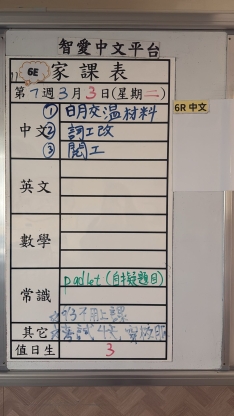 智愛中文平台
6E 家課表
第7週3月3日(星期二)
6R 中文
中文
① 日月交溫材料
② 詞工改
③ 閱工
英文
數學
常識
padlet (自擬題目)
不用上課
其它
考試
值日生
3